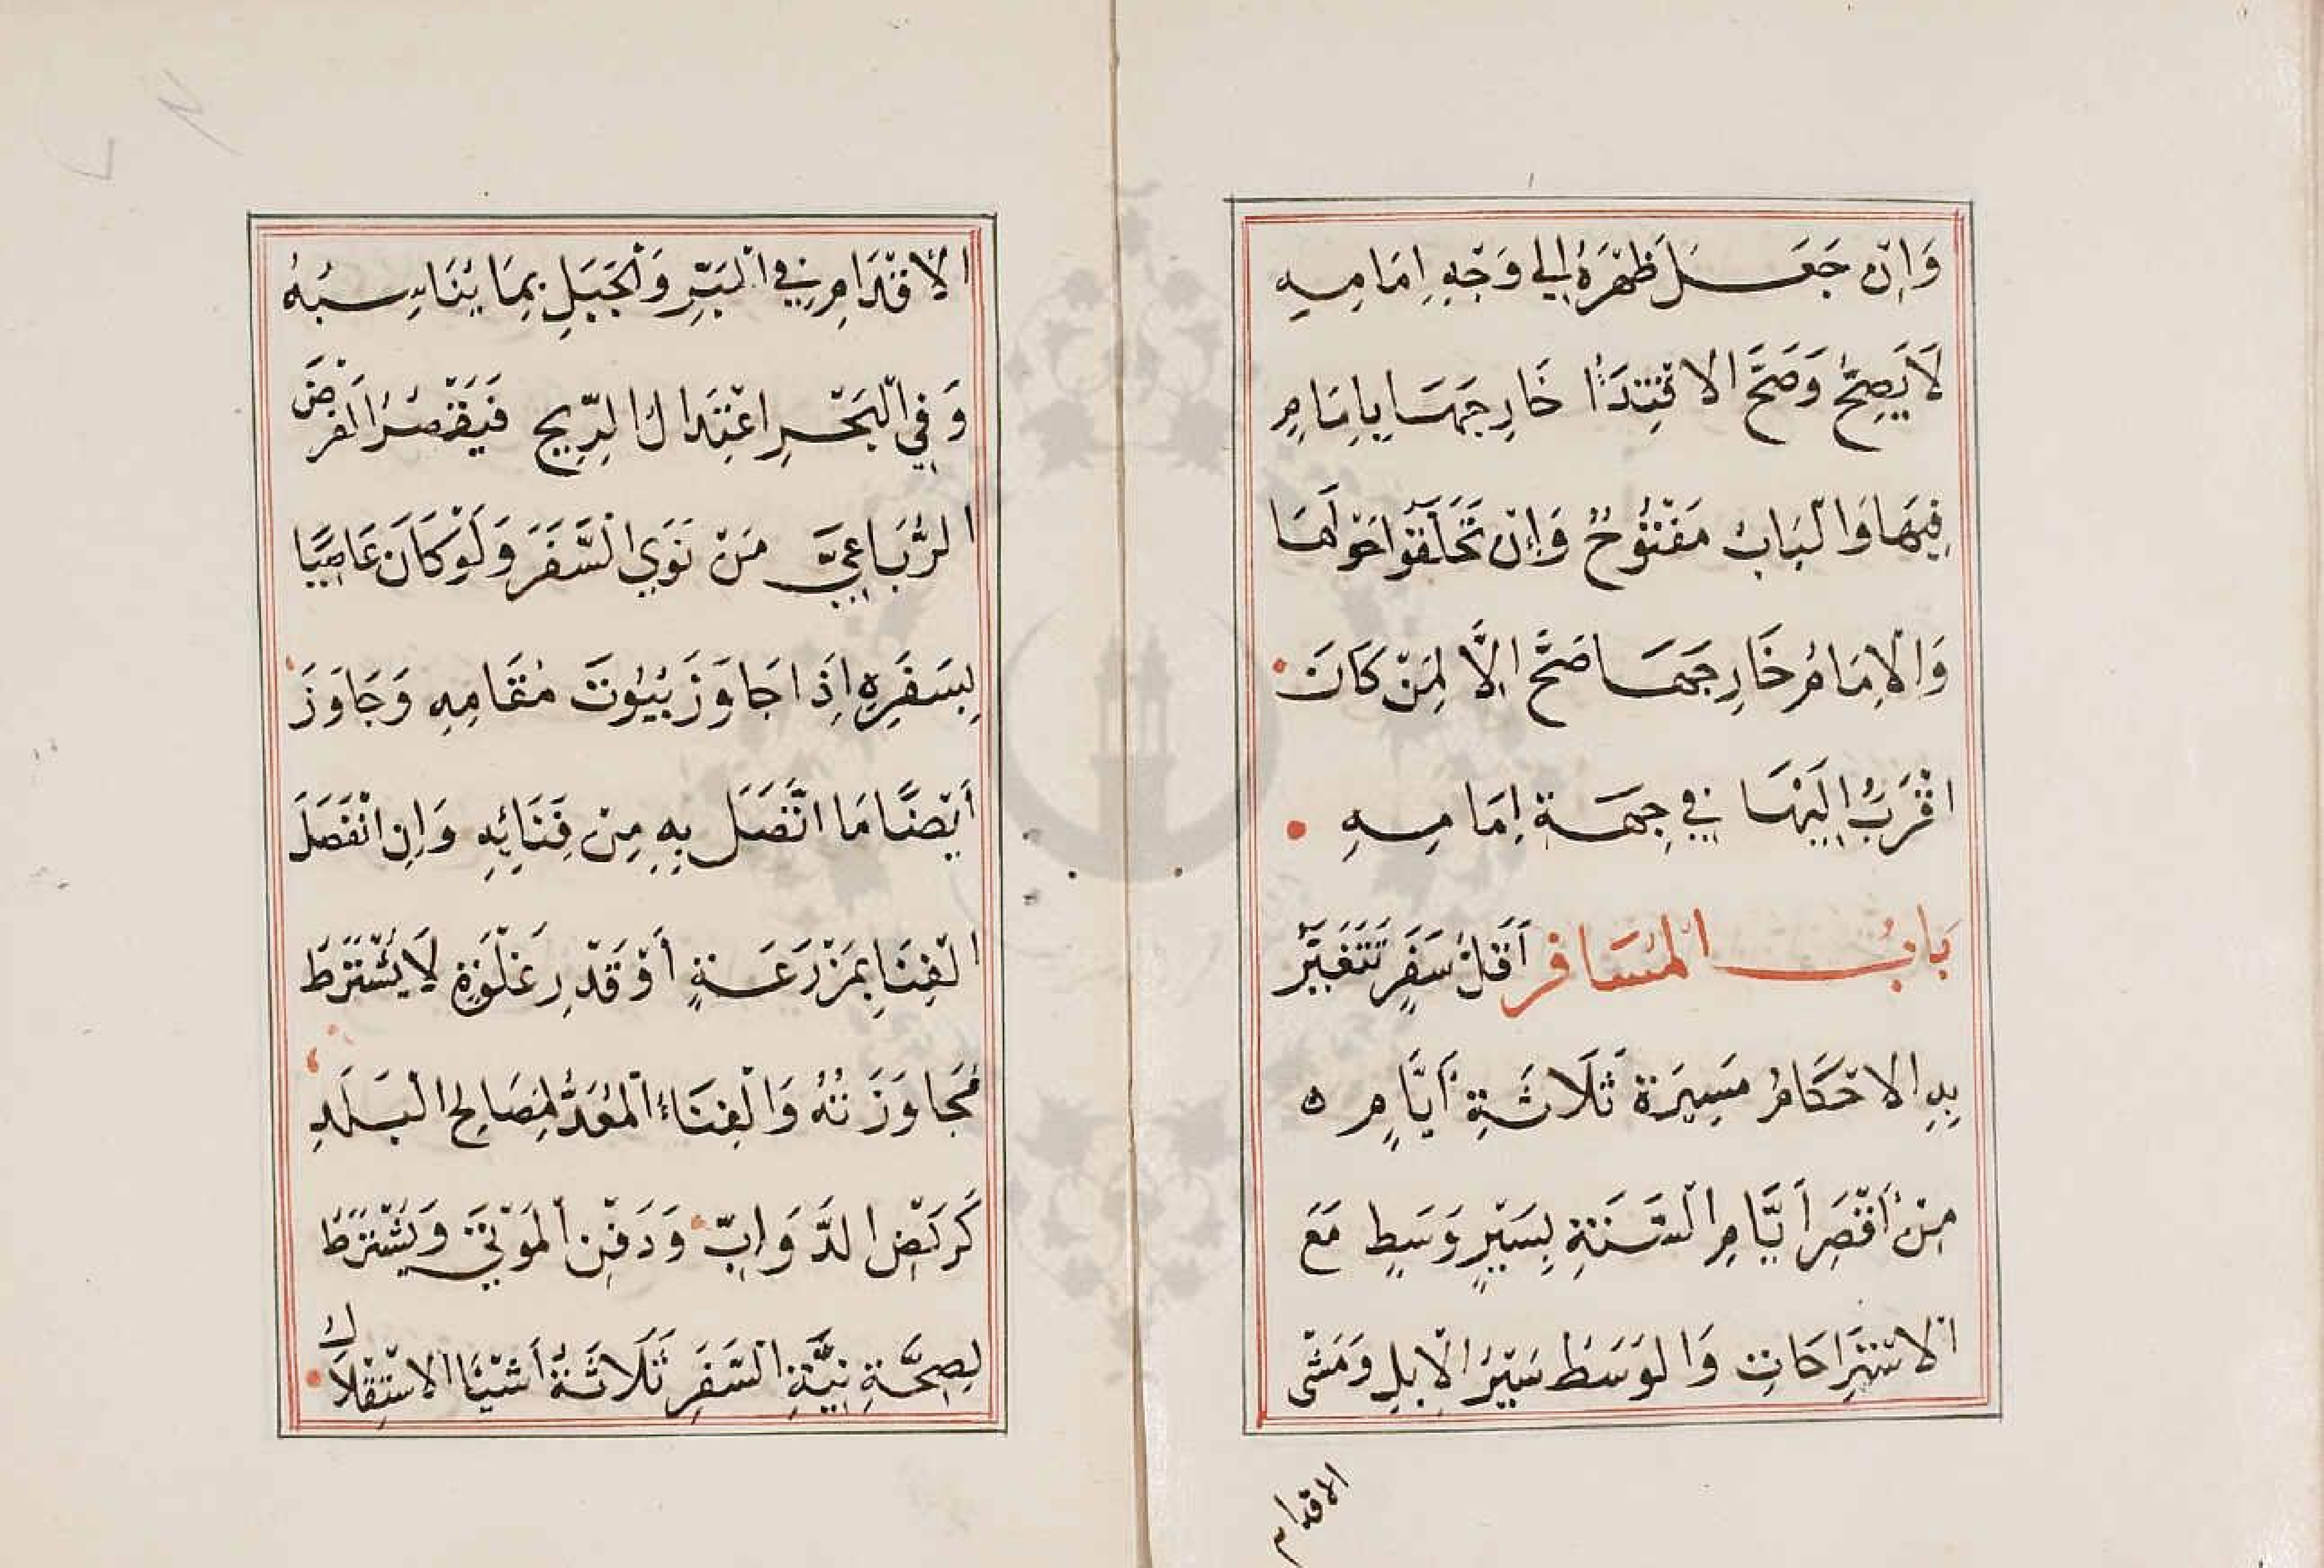 وَاِنْ جَعَلَ ظَهْرَهُ اِلي وَجْهِ اِمَامِهِ
لَا يَصِحُّ وَصَحَّ الاقْتِدَاُ خَارِجَهَا بِاِمَامٍ
فِيهَا وَالْبَابُ مَفْتُوْحٌ وَاِنْ تَحَلَّقُوا حَوْلَهَا
وَالْاِمَامُ خَارِجَهَا صَحَّ اِلَّا لِمَنْ كَانَ
اقْرَبُ اِلَيْهَا فِي جِهَةِ اِمَامِهِ
بَابُ الْمُسَافِرِ اَقَلُّ سَفَرٍ تَتَغَيَّرُ
بِهِ الاحْكَامُ مَسِيْرَة ثَلَاثَةِ أَيَّامٍ ه
مِنْ أَقْصَرِ أَيَّامِ السَّنَةِ بِسَيْرٍ وَسَطٍ مَعَ
الْاسْتِرَاحَاتِ وَالوَسَطُ سَيْرُ الْاِبِلِ وَمَشْى
الاقدام
الْأَقْدَامِ فِي الْبَرِّ وَالْجَبَلِ بِمَا يُنَاسِبُهُ
وَفِي الْبَحْرِ اعْتِدَالُ الرِّيحِ فَيَقْصُرُ الْفَرْضَ
الرُّبَاعِيَّ مَنْ نَوَي السَّفَرَ وَلَوْ كَانَ عَاصِيًا
بِسَفَرِهِ اِذَا جَاوَزَ بُيُوْتَ مُقَامِهِ وَجَاوَزَ
أَيْضًا مَا اتَّصَلَ بِهِ مِنْ فِنَائِهِ وَاِنِ انْفَصَلَ
الْفِنَا بِمَزْرَعَةٍ أَوْ قَدْرِ غَلْوَةٍ لَا يُشْتَرَطُ
مُجَاوَزَتُهُ وَالْفِنَاءُ الْمُعَدُّ لِمَصَالِحِ الْبَلَدِ
كَرَكْضِ الدَّوَابِّ وَدَفْنِ الْمَوْتَي وَيُشْتَرَطُ
لِصِحَّةِ نِيَّةِ السَّفَرِ ثَلَاثَةُ أَشْيَا الاسْتِقْلَالُ